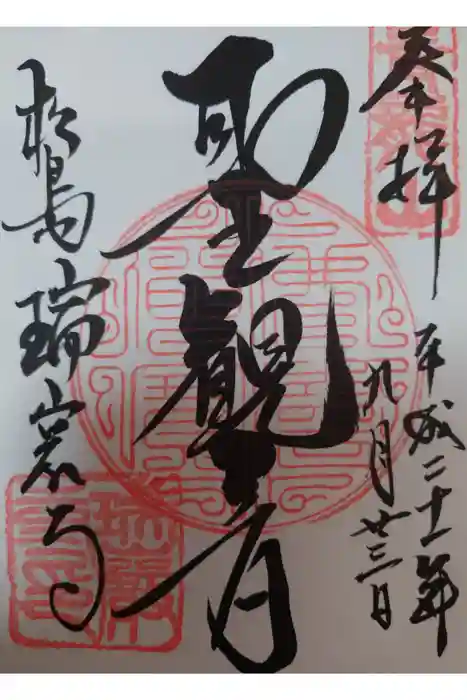 奉拝
平成二十一年
九月廿三日
聖観音
松島瑞巌寺